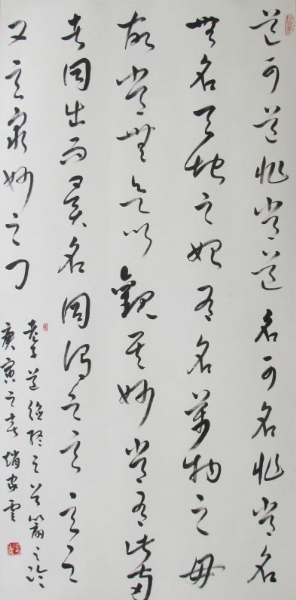 道可道非常道名可名非常名
無名天地之始有名萬物之母
故常無欲以觀其妙常有此兩
者同出而異名同謂之玄玄之
又玄衆妙之門
老子道德經之
庚寅之春